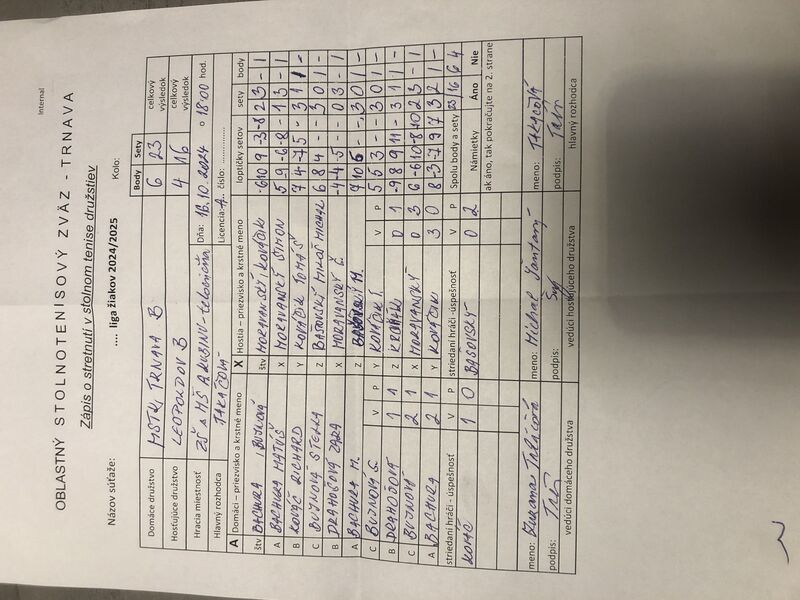 Internal
OBLASTNÝ STOLNOTENISOVÝ ZVÄZ - TRNAVA
Zápis o stretnutí v stolnom tenise družstiev
Názov súťaže: .... liga žiakov 2024/2025 Kolo:
Body Sety
Domáce družstvo MSTK TRNAVA B 6 23 celkový výsledok
Hosťujúce družstvo LEOPOLDOV B 4 16 celkový výsledok
Hracia miestnosť ZŠ a MŠ A. KUBINU - telocvičňa Dňa: 16.10.2024 o 18:00 hod.
Hlavný rozhodca TAKÁČOVÁ Licencia: A. číslo: ..............
A Domáci – priezvisko a krstné meno X Hostia – priezvisko a krstné meno loptičky setov sety body
štv BACHURA, BUJNOVÁ štv MORAVANSKÝ KOVÁČIK -6 10 9 -3 -8 2 3 - 1
A BACHURA MATÚŠ X MORAVANSKÝ ŠIMON 5 -9 -6 -8 - 1 3 - 1
B KOVÁČ RICHARD Y KOVÁČIK TOMÁŠ 7 4 -7 5 - 3 1 1 -
C BUJNOVÁ STELLA Z BAŠOVSKÝ MICHAL 6 8 4 - - 3 0 1 -
B DRAHOŠOVÁ ZARA X MORAVANSKÝ Š. -4 -4 -5 - - 0 3 - 1
A BACHURA M. Z BAŠOVSKÝ M. 9 10 5 - - 3 0 1 -
C BUJNOVÁ S. V P Y KOVÁČIK T. V P 5 5 3 - - 3 0 1 -
B DRAHOŠOVÁ 1 1 Z 0 1 -9 8 9 11 - 3 1 1 -
C BUJNOVÁ 2 1 X MORAVANSKÝ 0 3 6 -6 10 -8 10 2 3 - 1
A BACHURA 2 1 Y KOVÁČIK 3 0 8 -3 -7 9 7 3 2 1 -
striedaní hráči - úspešnosť V P striedaní hráči -úspešnosť V P Spolu body a sety 23 16 6 4
KOVÁČ 1 0 BAŠOVSKÝ 0 2 Námietky Áno Nie
ak áno, tak pokračujte na 2. strane
meno: Zuzana Takáčová meno: Michal meno: TAKÁČOVÁ
podpis: podpis: podpis:
vedúci domáceho družstva vedúci hosťujúceho družstva hlavný rozhodca